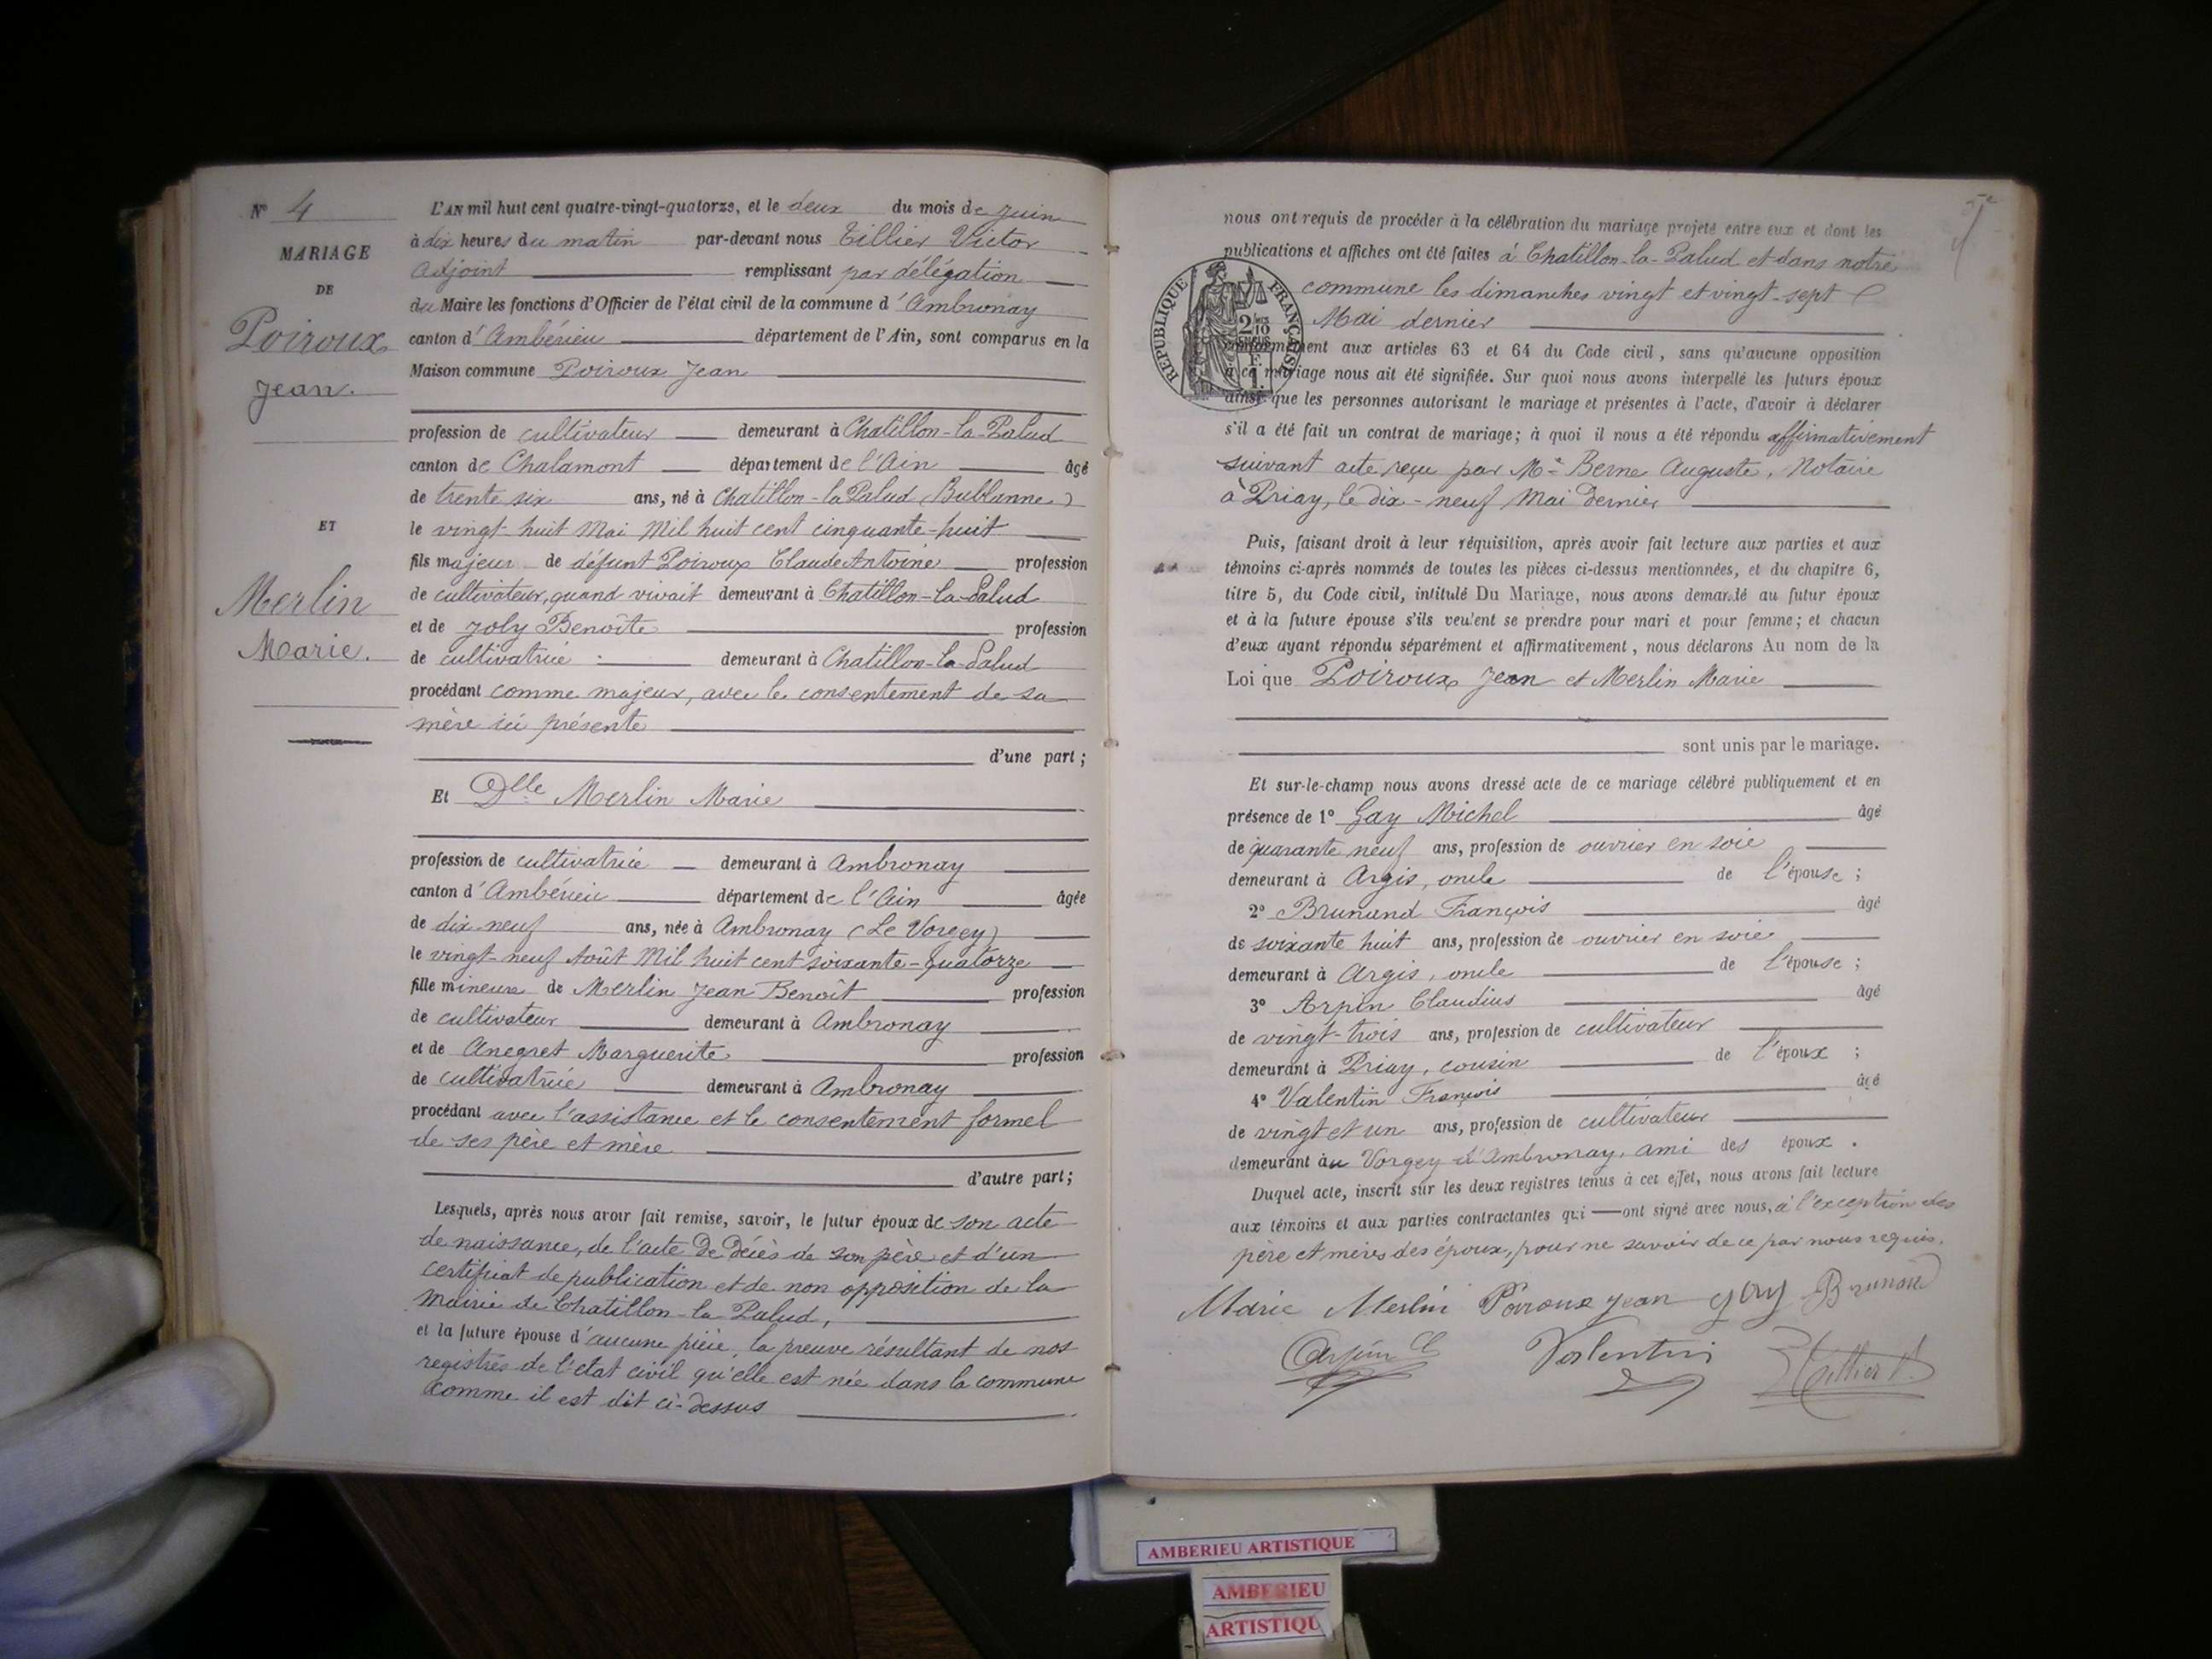 N° 4
MARIAGE
DE
Poiroux
Jean.
ET
Merlin
Marie.
L'AN mil huit cent quatre-vingt-quatorze, et le deux du mois de Juin
à dix heures du matin par-devant nous Tillier Victor
Adjoint remplissant par délégation
du Maire les fonctions d'Officier de l'état civil de la commune d'Ambronay
canton d'Ambérieu département de l'Ain, sont comparus en la
Maison commune Poiroux Jean
profession de cultivateur demeurant à Chatillon-la-Palud
canton de Chalamont département de l'Ain âgé
de trente six ans, né à Chatillon-la Palud (Bublanne)
le vingt-huit Mai Mil huit cent cinquante-huit
fils majeur de défunt Poiroux Claude Antoine profession
de cultivateur, quand vivait demeurant à Chatillon-la-Palud
et de Joly Benoîte profession
de cultivatrice demeurant à Chatillon-la-Palud
procédant comme majeur, avec le consentement de sa
mère ici présente
d'une part;
Et Dlle Merlin Marie
profession de cultivatrice demeurant à Ambronay
canton d'Ambérieu département de l'Ain âgée
de dix neuf ans, née à Ambronay (Le Vorgey)
le vingt-neuf Août Mil huit cent soixante-quatorze
fille mineure de Merlin Jean Benoît profession
de cultivateur demeurant à Ambronay
et de Anegret Marguerite profession
de cultivatrice demeurant à Ambronay
procédant avec l'assistance et le consentement formel
de ses père et mère
d'autre part;
Lesquels, après nous avoir fait remise, savoir, le futur époux de son acte
de naissance, de l'acte de décès de son père et d'un
certificat de publication et de non opposition de la
Mairie de Chatillon-la-Palud,
et la future épouse d'aucune pièce, la preuve résultant de nos
registres de l'état civil qu'elle est née dans la commune
comme il est dit ci-dessus
5e
nous ont requis de procéder à la célébration du mariage projeté entre eux et dont les
publications et affiches ont été faites à Chatillon-la-Palud et dans notre
commune les dimanches vingt et vingt-sept
Mai dernier
REPUBLIQUE FRANÇAISE
conformément aux articles 63 et 64 du Code civil, sans qu'aucune opposition
à ce mariage nous ait été signifiée. Sur quoi nous avons interpellé les futurs époux
ainsi que les personnes autorisant le mariage et présentes à l'acte, d'avoir à déclarer
s'il a été fait un contrat de mariage; à quoi il nous a été répondu affirmativement
suivant acte reçu par Me Berne Auguste, Notaire
à Priay, le dix-neuf Mai dernier
Puis, faisant droit à leur réquisition, après avoir fait lecture aux parties et aux
témoins ci-après nommés de toutes les pièces ci-dessus mentionnées, et du chapitre 6,
titre 5, du Code civil, intitulé Du Mariage, nous avons demandé au futur époux
et à la future épouse s'ils veulent se prendre pour mari et pour femme; et chacun
d'eux ayant répondu séparément et affirmativement, nous déclarons Au nom de la
Loi que Poiroux Jean et Merlin Marie
sont unis par le mariage.
Et sur-le-champ nous avons dressé acte de ce mariage célébré publiquement et en
présence de 1° Gay Michel âgé
de quarante neuf ans, profession de ouvrier en soie
demeurant à Argis, oncle de l'épouse;
2° Brunand François âgé
de soixante huit ans, profession de ouvrier en soie
demeurant à Argis, oncle de l'épouse;
3° Arpin Claudius âgé
de vingt-trois ans, profession de cultivateur
demeurant à Priay, cousin de l'époux;
4° Valentin François âgé
de vingt et un ans, profession de cultivateur
demeurant au Vorgey d'Ambronay, ami des époux.
Duquel acte, inscrit sur les deux registres tenus à cet effet, nous avons fait lecture
aux témoins et aux parties contractantes qui ont signé avec nous, à l'exception des
père et mères des époux, pour ne savoir de ce par nous requis.
Marie Merlin Poiroux Jean gay Brunand
Arpin C Valentin Tillier V.
AMBERIEU ARTISTIQUE
AMBERIEU
ARTISTIQU